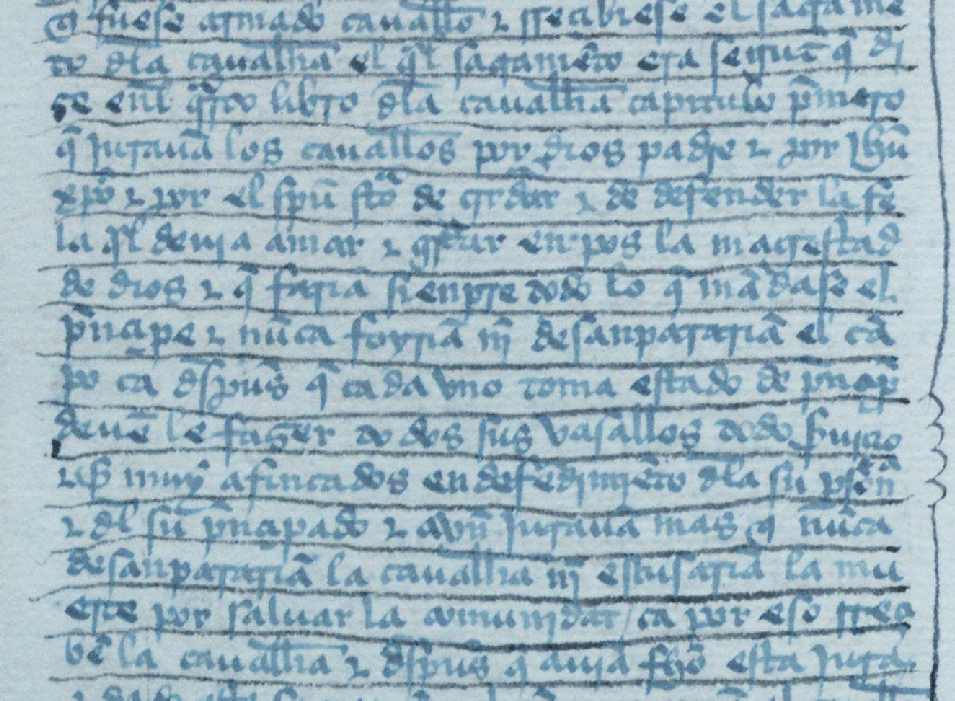 q̃ fuese armado cauall̃o ⁊ rreçibiese el sacrame
to dl̃a cauall̃ia el q̃l sacramẽto era segũt q̃ di
ze enl̃ libro dl̃a cauall̃ia capitulo p̃mero
q̃ jurauã los cauall̃os por dios padre ⁊ por jhũ
xp̃o ⁊ por el sp̃u stõ de grdar ⁊ de defender la fe
la q̃l deuia amar ⁊ enpos la magestad
de dios ⁊ q̃ fariã sienpre todo lo q̃ mãdase el
p̃ncipe ⁊ nũca foyriã nĩ desanparariã el cã
po ca dsp̃us q̃ cada vno toma estado de p̃ncip̃
deuẽ le fazer todos sus vasallos todo s̃uicio
muy afincados en defedimiẽto dl̃a su
⁊ dl̃ su p̃ncipado ⁊ avñ jurauã mas q̃ nũca
desanparariã la cauall̃ia nĩ escusariã la mu
erte por saluar la comunidat / ca por eso rreçi
bẽ la cauall̃ia ⁊ dsp̃us q̃ auiã fh̃o esta jura